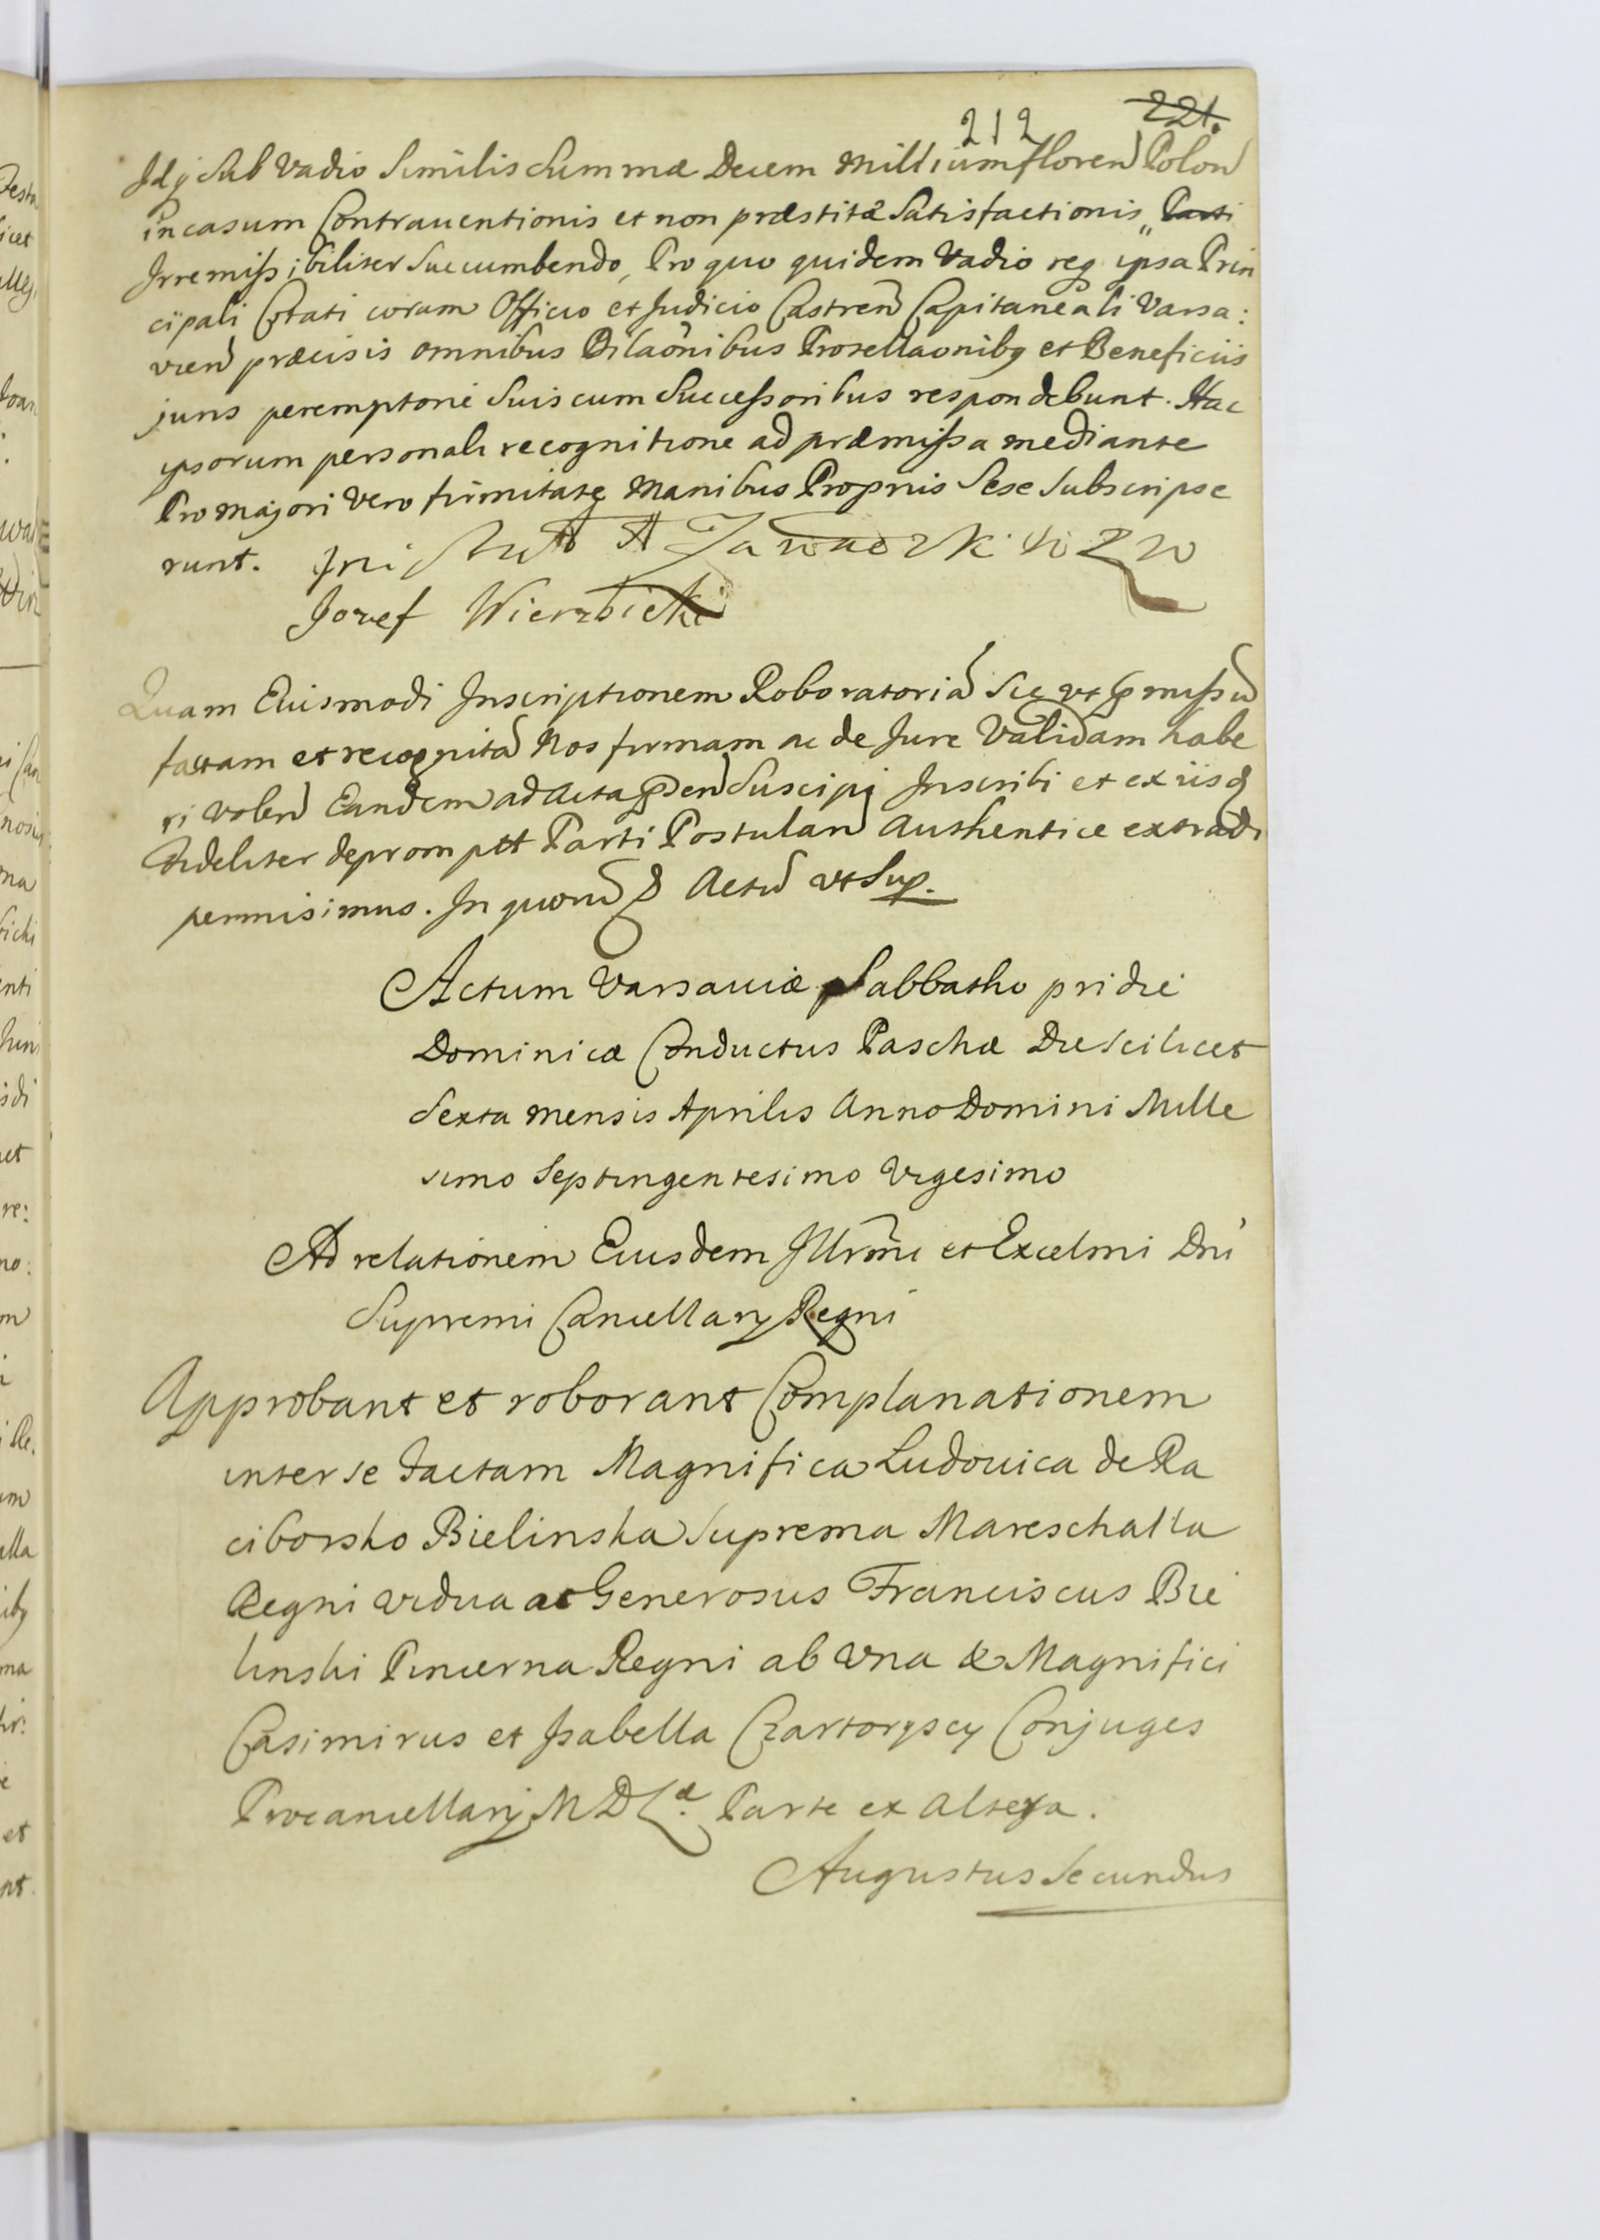 212 221.
Idq Sub Vadio Similis Summæ Decem Millium floren Polon
in casum Contrauentionis et non præstitæ Satisfactionis „ Parti
Irremissibiliter Succumbendo, Pro quo quidem Vadio reg ipsa Prin
cipali Citati coram Officio et Judicio Castren Capitaneali Varsa:
vien præcisis omnibus Dilaõnibus Prosellaonibq et Beneficiis
juris peremptorie Suis cum Successoribus respondebunt. Hac
ipsorum personali recognitione ad præmissa mediante
Pro majori Vero firmitate Manibus Proprijs Sese Subscripse
runt.
Jozef Wierzbicki
Quam Eiusmodi Inscriptionem Roboratoriã Sic vt pmissũ
factam et recognitã Nos firmam ac de Jure Validam habe
ri volen Eandem ad Acta pñen Suscipi Inscribi et ex iisq
fideliter deprompt Parti Postulan Authentice extradi
permisimus. In quorũ Actũ vt Sup.
Actum Varsauiæ Sabbatho pridie
Dominicæ Conductus Paschæ Die Scilicet
Sexta mensis Aprilis Anno Domini Mille
simo Septingentesimo Vigesimo
Ad relationem Eiusdem Illrmi et Excelmi Dni
Supremi Cancellarij Regni
Approbant et roborant Complanationem
inter se factam Magnifica Ludouica de Ra
ciborsko Bielinska Suprema Mareschalla
Regni Vidua ac Generosus Franciscus Bie
linski Pincerna Regni ab Vna & Magnifici
Casimirus et Isabella Czartoryscy Conjuges
Procancellarij M D L æ. Parte ex Altera.
Augustus Secundus